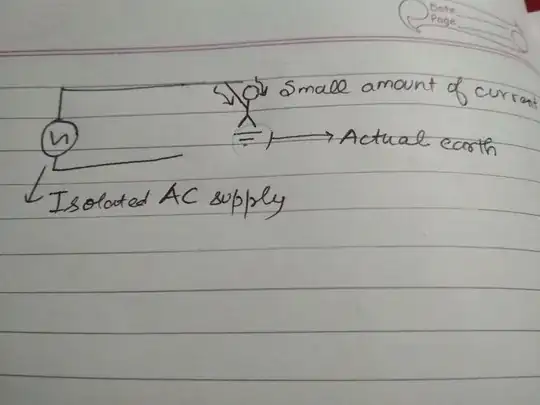 Date
Page
Small amount of current
Actual earth
Isolated AC supply